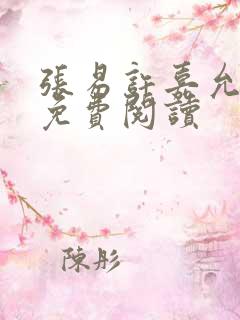 張易許嘉允
免費閱讀
陳彤